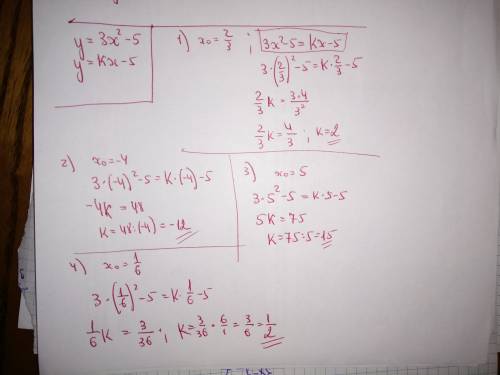 y = 3x² - 5
y = kx - 5
1) x₀ = 2/3 ; 3x² - 5 = kx - 5
3 · (2/3)² - 5 = k · 2/3 - 5
2/3 k = 3·4/3²
2/3 k = 4/3 ; k = 2
2) x₀ = -4
3 · (-4)² - 5 = k · (-4) - 5
-4k = 48
k = 48 : (-4) = -12
3) x₀ = 5
3 · 5² - 5 = k · 5 - 5
5k = 75
k = 75 : 5 = 15
4) x₀ = 1/6
3 · (1/6)² - 5 = k · 1/6 - 5
1/6 k = 3/36 ; k = 3/36 · 6/1 = 3/6 = 1/2